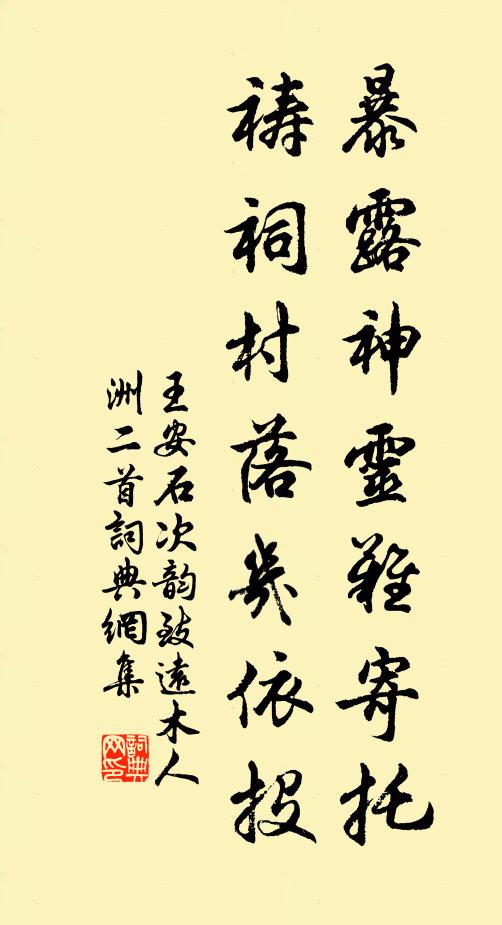 暴露神靈難寄托
禱祠村落幾依投
王安石次韵致遠木人
洲二首詞典網集
詞典網印